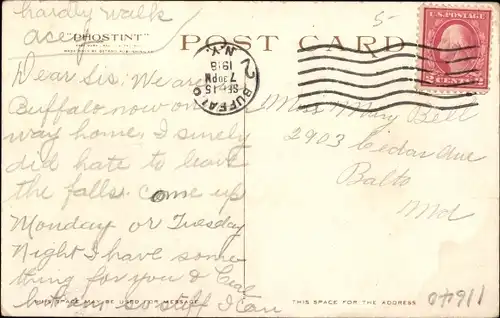 hardly walk
"PHOSTINT"
POST CARD
5-
U.S. POSTAGE
2 CENTS 2
BUFFALO N.Y.
2
SEP 15
7 30 PM
1918
Dear Sis: We are
Buffalo now on
way home, I surely
did hate to leave
the falls. Come up
Monday or Tuesday
Night I have some
thing for you &
but am so stiff I can
Miss Mary Bell
2903 Cedar Ave
Balto
Md
SPACE MAY BE USED FOR MESSAGE
THIS SPACE FOR THE ADDRESS
11640